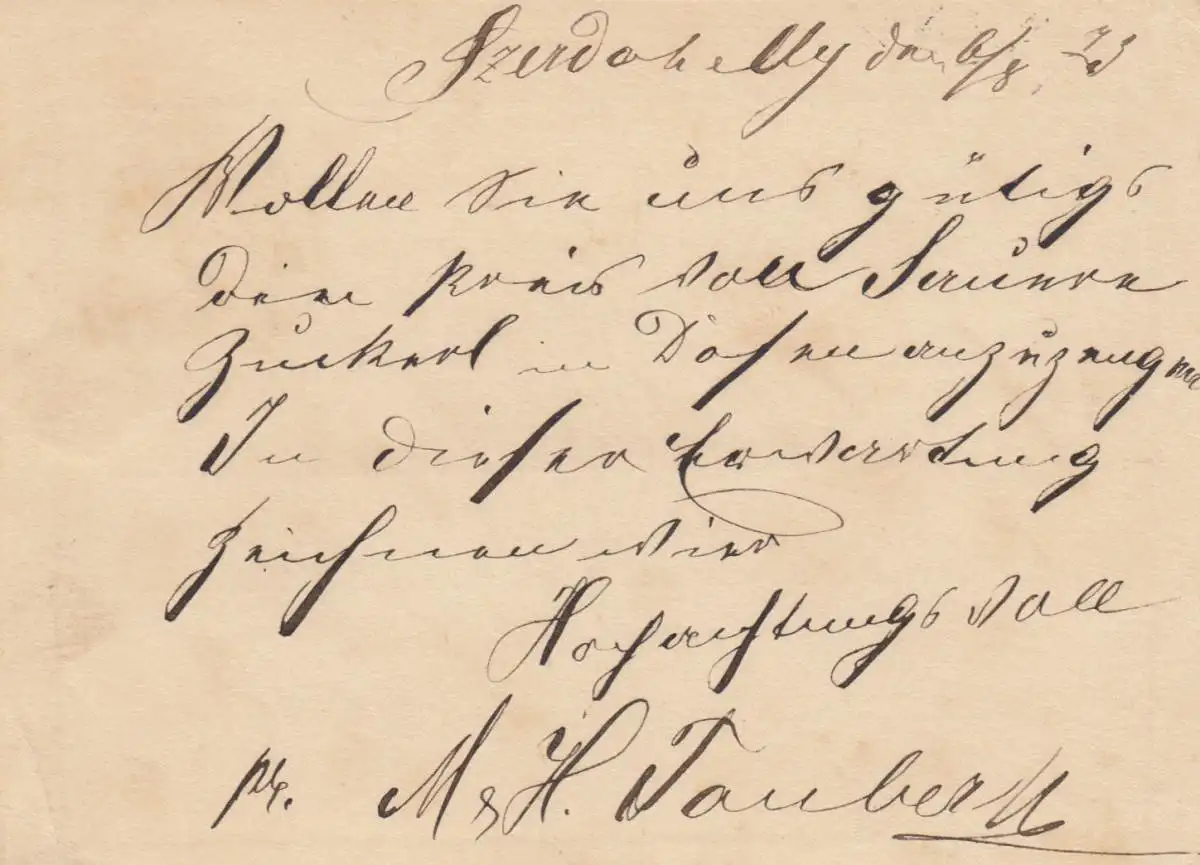 Szerdahelly den 6/8. 73
Wollen Sie uns gütigs
den Preis von Sauere
Zuckerl in Dosen anzuzeugen
In dieser Erwartung
zeichnen wier
Hochachtungsvoll
pp. M & H. Tauber